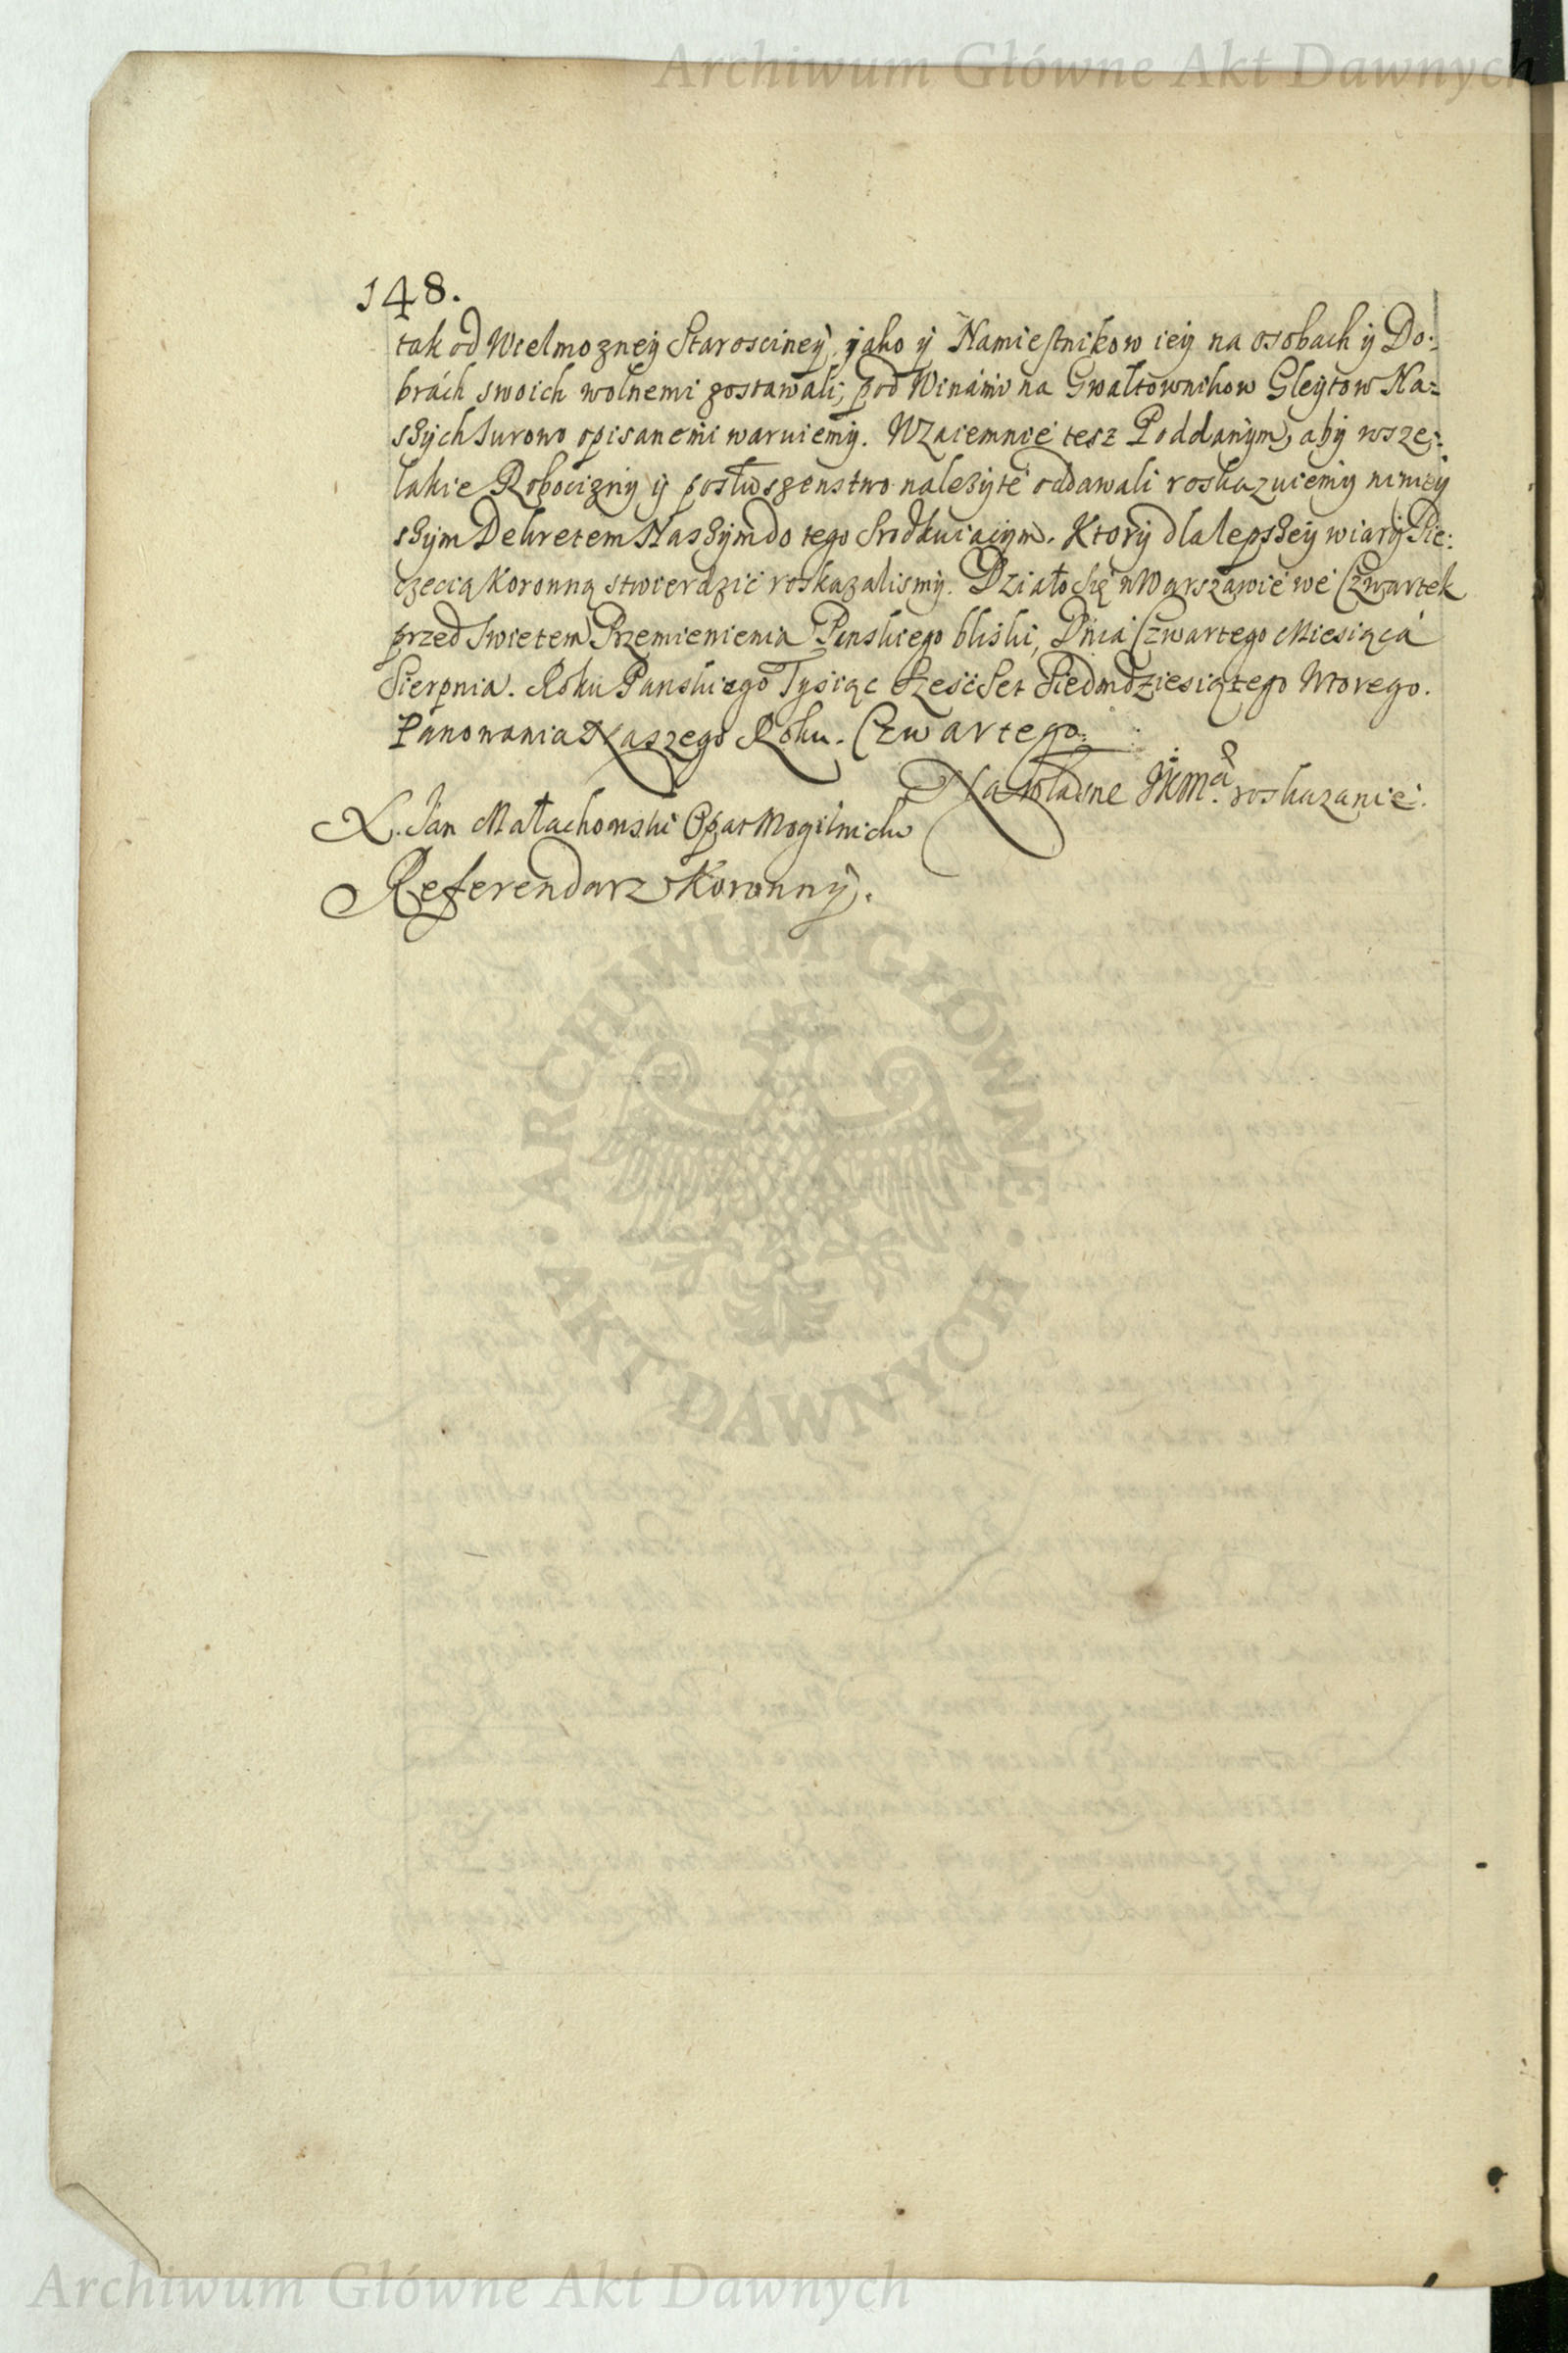 Archiwum Główne Akt Dawnych
148.
tak od Wielmozney Starosciney, jako y Namiestnikow iey na osobach y Do:
brách swoich wolnemi zostawali, pod Winámi na Gwałtownikow Gleytow Na:
szych surowo opisanemi waruiemy. Wzaiemnie tesz Poddanym, aby wsze:
lakie Robocizny y posłuszenstwo należyte oddawali roskazuiemy niniey
szym Dekretem Naszym do tego srodkuiącym. Ktory dla lepszey wiary Pie:
częcią Koronną stwierdzić roskazalismy. Działo się w Warszawie we Czwartek
przed Swietem Przemienienia Panskiego bliski, Dnia Czwartego Miesiąca
Sierpnia. Roku Panskiego Tysiąc Szesc Set Siedmdziesiątego Wtorego.
Panowania Naszego Roku. Czwartego.
Na własne JKMći roskazanie.
X. Jan Małachowski Opat Mogilnicki
Referendarz Koronny.
ARCHIWUM GŁÓWNE · AKT DAWNYCH ·
Archiwum Główne Akt Dawnych